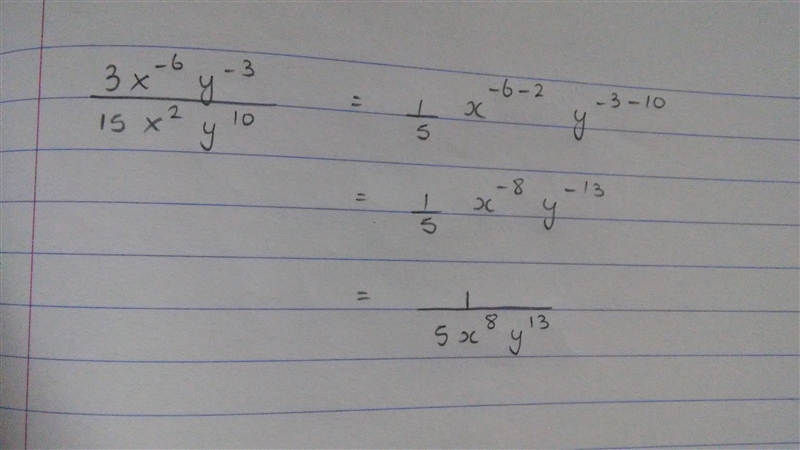 3x⁻⁶ y⁻³ / 15 x² y¹⁰ = 1/5 x⁻⁶⁻² y⁻³⁻¹⁰
= 1/5 x⁻⁸ y⁻¹³
= 1 / 5x⁸ y¹³